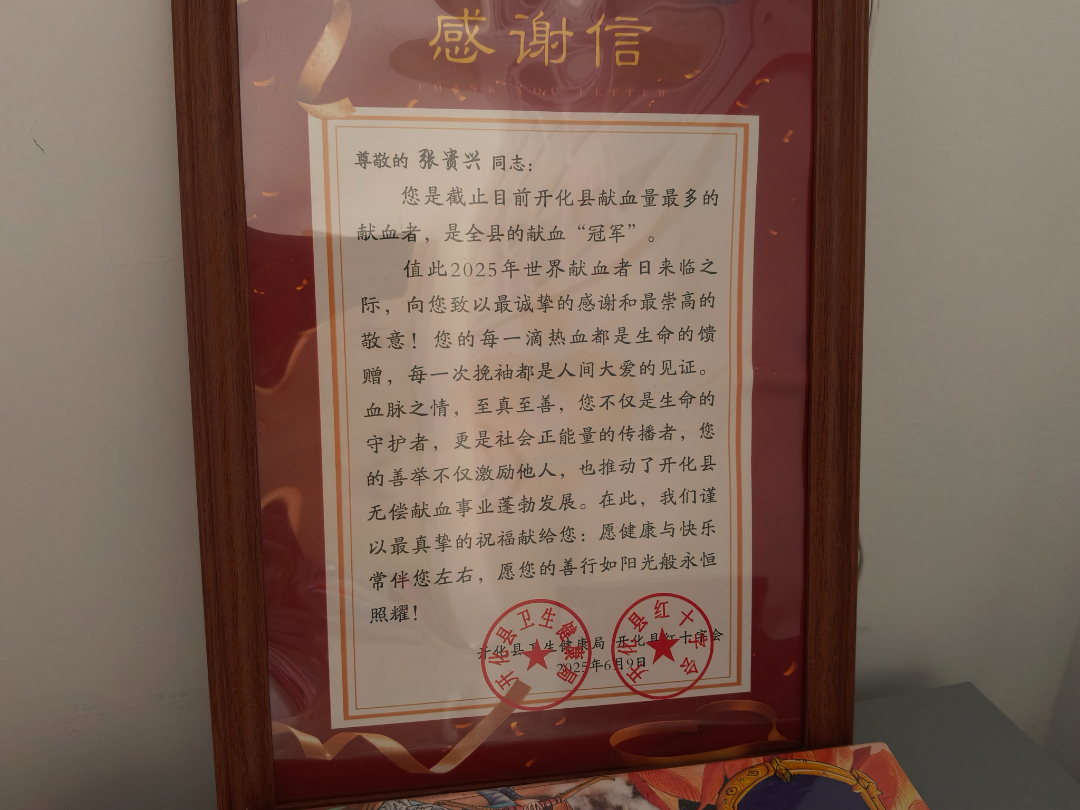 感谢信
THANK YOU LETTER
尊敬的 张贵兴 同志：
您是截止目前开化县献血量最多的
献血者，是全县的献血“冠军”。
值此2025年世界献血者日来临之
际，向您致以最诚挚的感谢和最崇高的
敬意！您的每一滴热血都是生命的馈
赠，每一次挽袖都是人间大爱的见证。
血脉之情，至真至善，您不仅是生命的
守护者，更是社会正能量的传播者，您
的善举不仅激励他人，也推动了开化县
无偿献血事业蓬勃发展。在此，我们谨
以最真挚的祝福献给您：愿健康与快乐
常伴您左右，愿您的善行如阳光般永恒
照耀！
开化县卫生健康局 开化县红十字会
2025年6月9日
开化县卫生健康局
开化县红十字会